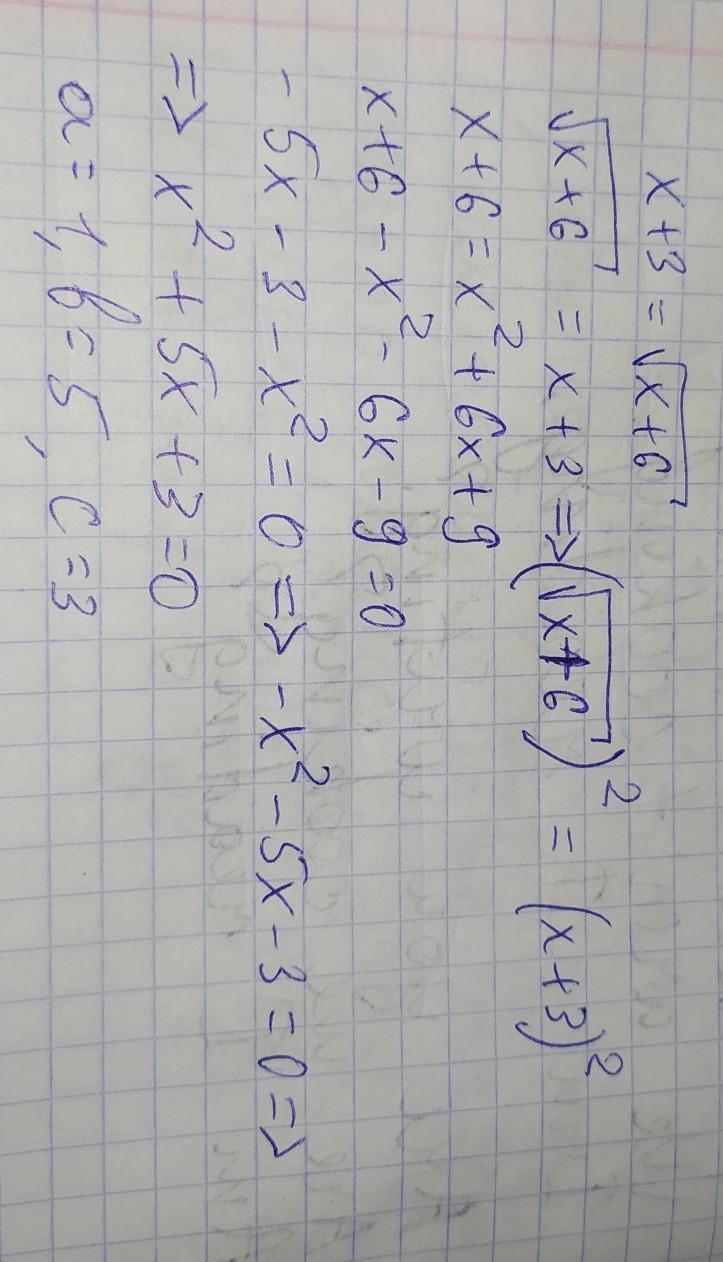 x+3 = √x+6
√x+6 = x+3 => (√x+6)² = (x+3)²
x+6 = x² + 6x+9
x+6 - x² - 6x - 9 = 0
- 5x - 3 - x² = 0 => -x² - 5x - 3 = 0 =>
=> x² + 5x + 3 = 0
a = 1, b = 5, c = 3